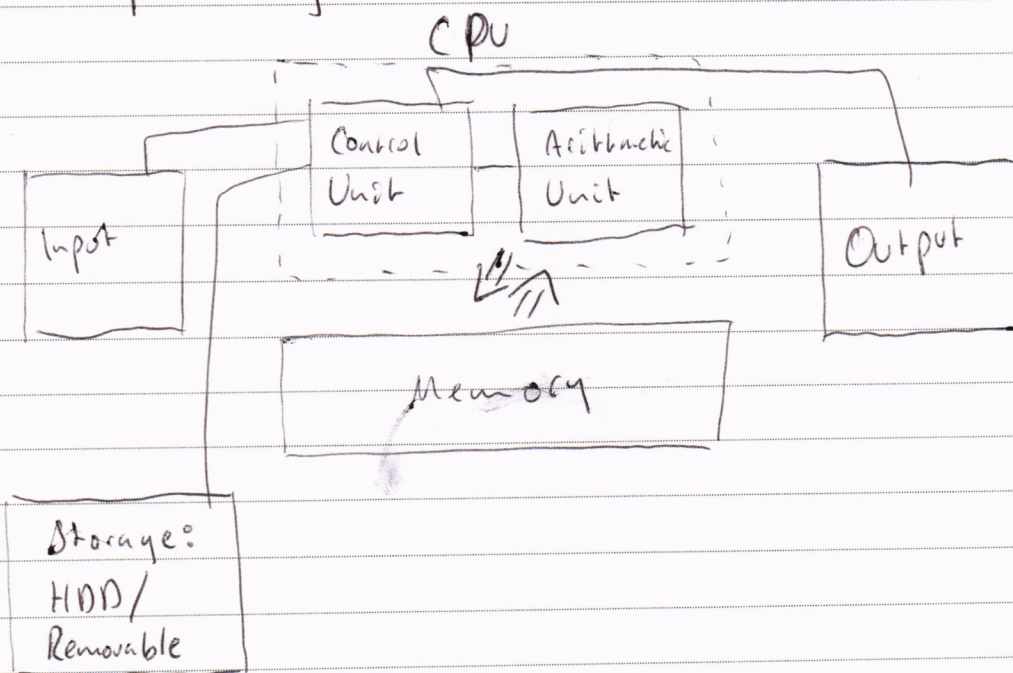 CPU
Control
Unit
Arithmetic
Unit
Input
Output
Memory
Storage:
HDD/
Removable